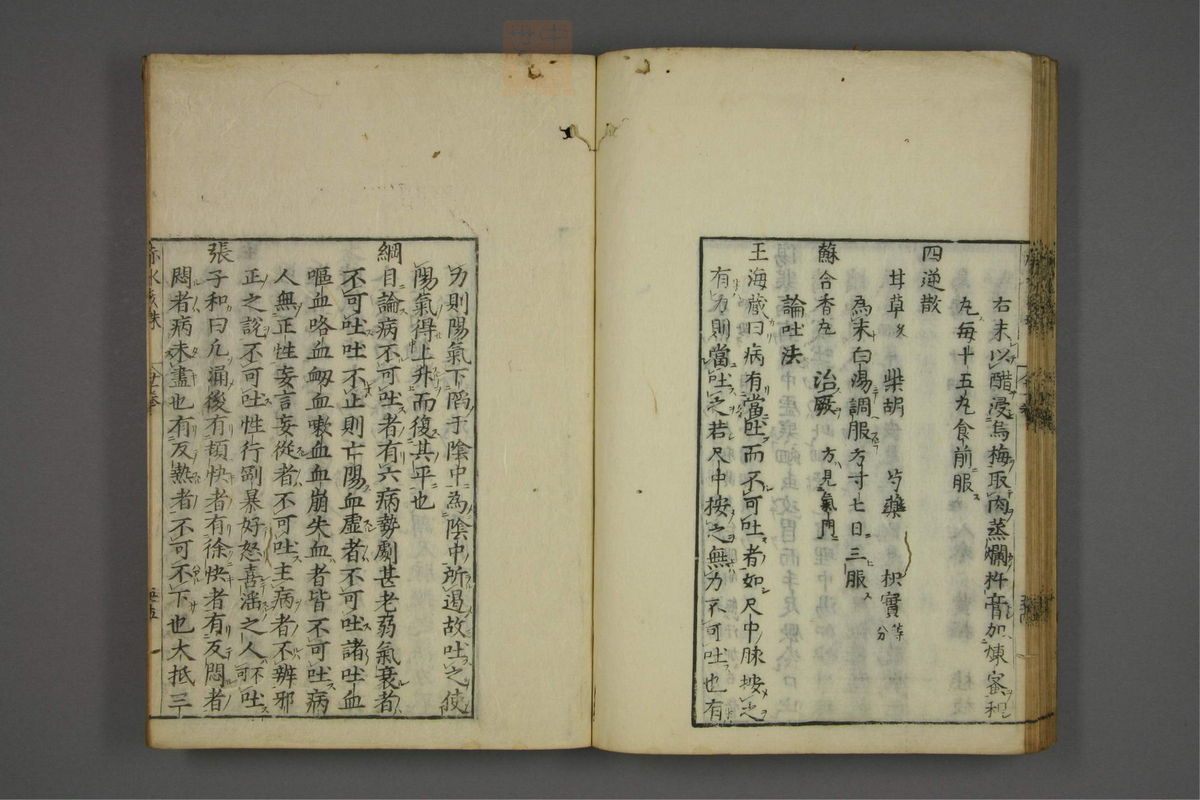 右末以醋浸烏梅取肉蒸爛杵膏加煉蜜和
丸每十五丸食前服
四逆散
甘草炙 柴胡 芍藥 枳實等分
為末白湯調服方寸七日三服
蘇合香丸 治厥 方見氣門
論吐法
王海藏曰病有當吐而不可吐者如尺中脉按之
有力則當吐之若尺中按之無力不可吐也有
力則陽氣下陷于陰中為陰中所遏故吐之使
陽氣得上升而復其平也
綱目論病不可吐者有六病勢劇甚老弱氣衰者
不可吐吐不止則亡陽血虛者不可吐諸吐血
嘔血咯血衂血嗽血血崩失血者皆不可吐病
人無正性妄言妄從者不可吐主病者不辨邪
正之說不可吐性行剛暴好怒喜滛之人不可吐
張子和曰凡漏後有頓快者有徐快者有反悶者
悶者病未盡也有反熱者不可不下也大抵三
赤水玄珠